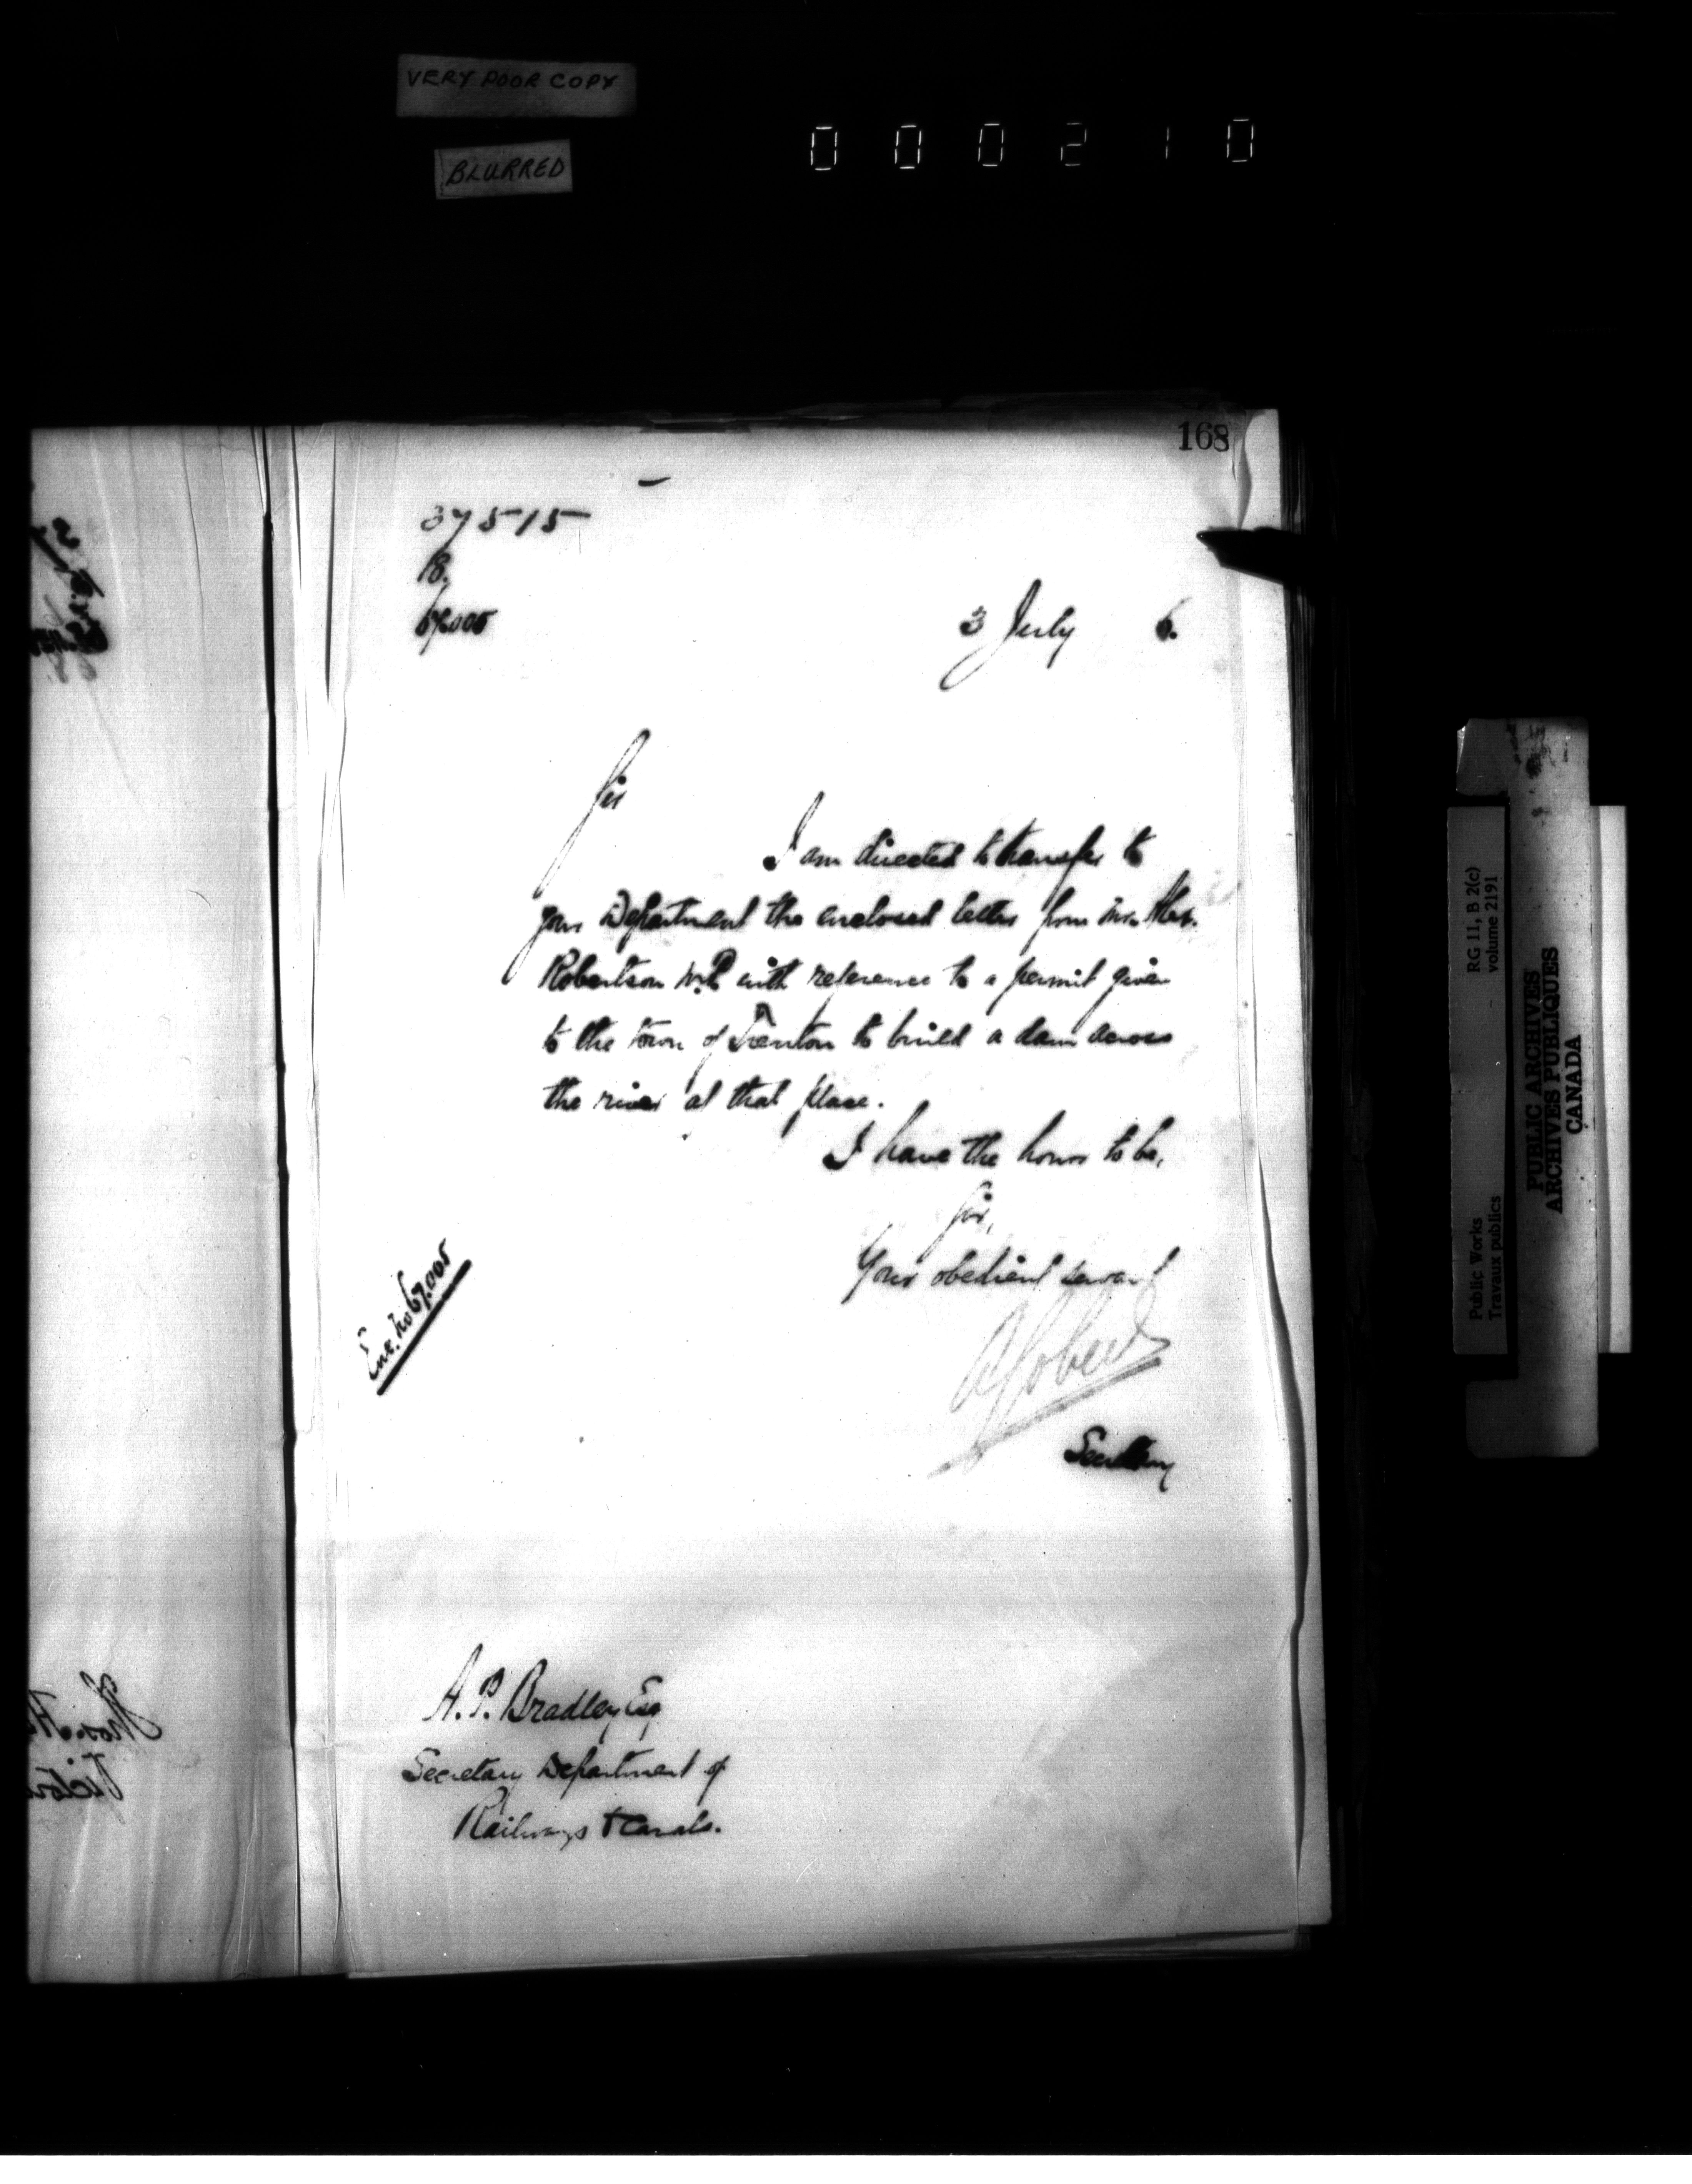 VERY POOR COPY
BLURRED
0 0 0 2 1 0
168
37515
B.
67.005
3 July 6.
Sir
I am directed to transfer to
your Department the enclosed letter from Mr. Alex.
Robertson M.P. with reference to a permit given
to the town of Trenton to build a dam across
the river at that place.
I have the honor to be,
Sir,
Your obedient servant
AGobeil
Secretary
Enc. No 67.005
A. P. Bradley Esq
Secretary Department of
Railways & Canals.
RG 11, B 2(c)
volume 2191
Public Works
Travaux publics
PUBLIC ARCHIVES
ARCHIVES PUBLIQUES
CANADA